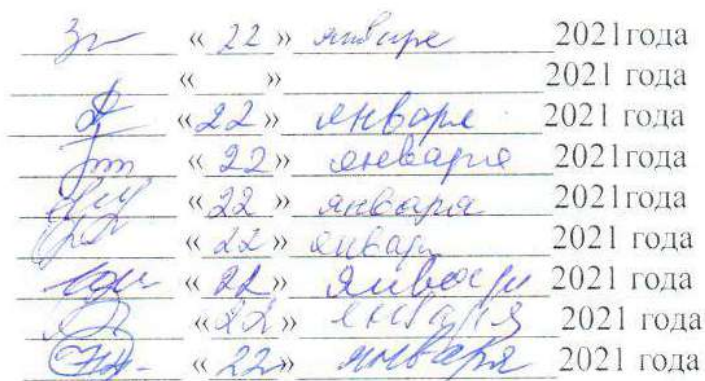 « 22 » января 2021года
« » 2021 года
« 22 » января 2021 года
« 22 » января 2021 года
« 22 » января 2021года
« 22 » январ 2021 года
« 22 » января 2021 года
« 22 » января 2021 года
« 22 » января 2021 года